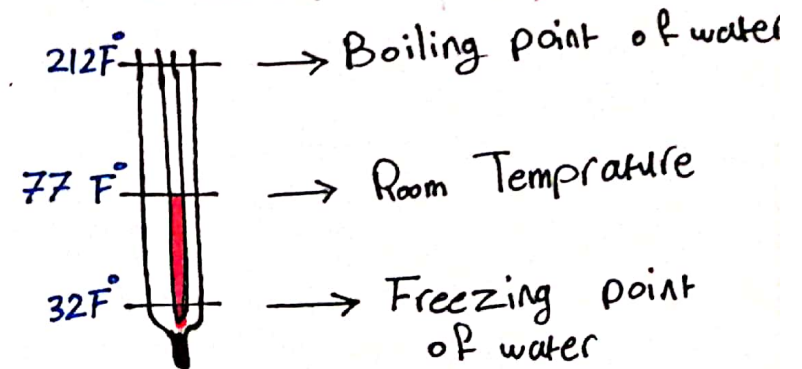 212F° → Boiling point of water
77 F° → Room Temprature
32F° → Freezing point
of water